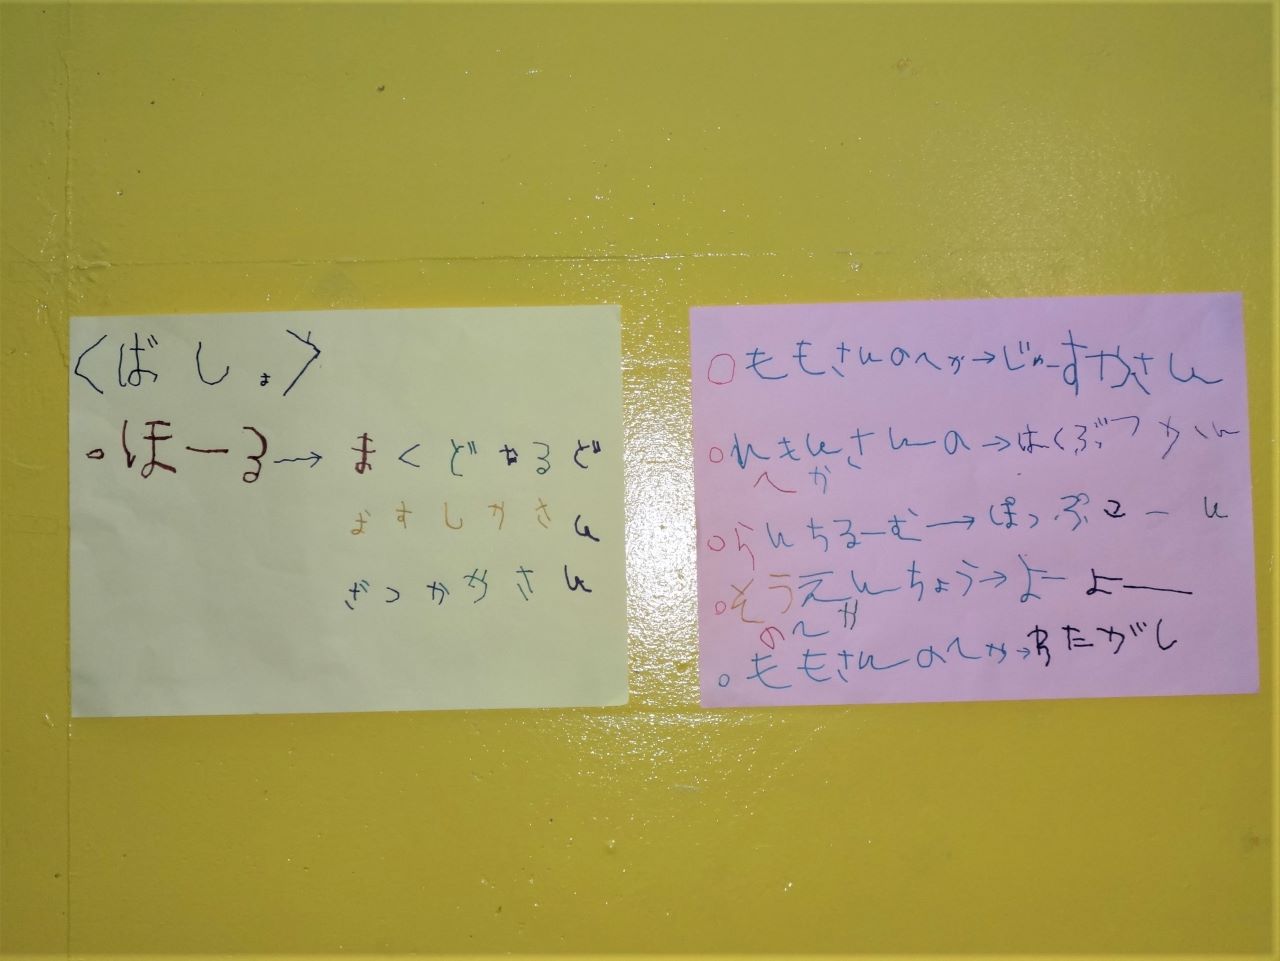 〈ばしょ〉
○ほーる→まくどなるど
おすしかさん
ざっかかさん
○ももさんのへか→じゅーすかさん
○れもんさんの→はくぶつかくん
へか
○らんちるーむ→ぽっぷこーん
○そうえんちょう→よーよー
のへか
○ももさんのへか→わたがし